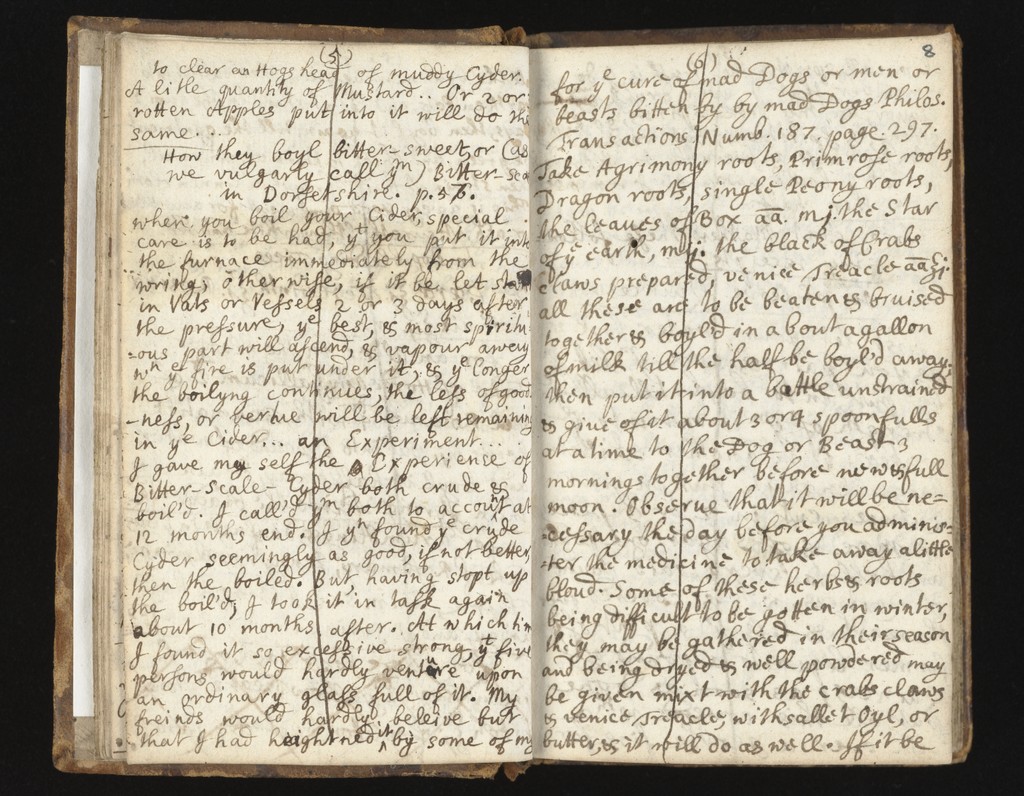 (5)
to clear an Hogs head of muddy Cyder.
A litle quantity of Mustard.. Or 2 or
rotten Apples put into it will do the
same...
How they boyl bitter-sweet, or (as
we vulgarly call yᵐ) Bitter-sca
in Dorsetshire. p. 576.
when you boil your Cider, special
care is to be had, yᵗ you put it into
the furnace immediately from the
wring; otherwise, if it be let stan
in Vats or Vessels 2 or 3 days after
the pressure, yᵉ best, & most spiritu-
-ous part will ascend, & vapour away
wⁿ yᵉ fire is put under it, & yᵉ longer
the boilyng continues, the less of good
-ness, or vertue will be left remaining
in yᵉ Cider... an Experiment...
I gave my self the Experience of
Bitter-scale-Cyder both crude &
boil'd. I call'd yᵐ both to account at
12 months end. I yⁿ found yᵉ crude
Cyder seemingly as good, if not better,
then the boiled. But having stopt up
the boil'd, I took it in task again
about 10 months after. At which tim
I found it so excessive strong, yᵗ five
persons would hardly venture upon
an ordinary glass full of it. My
freinds would hardly beleive but
that I had heightned it by some of my
8
(6)
for yᵉ cure of mad Dogs or men or
beasts bitten by by mad Dogs Philos.
Transactions Numb. 187. page. 297.
Take Agrimony roots, Primrose roots,
Dragon roots, single Peony roots,
the leaves of Box aa. mj. the Star
of yᵉ earth, mij. the black of Crabs
claws prepared, venice Treacle aa ʒj.
all these are to be beaten & bruised
together & boyl'd in about a gallon
of milk till the half be boyl'd away.
then put it into a bottle unstrained
& give of it about 3 or 4 spoonfulls
at a time to the Dog or Beast 3
mornings together before new & full
moon. Observe that it will be ne=
=cessary the day before you adminis=
=ter the medicine to take away a little
bloud. Some of these herbs & roots
being difficult to be gotten in winter,
they may be gathered in their season
and being dryed & well powdered may
be given mixt with the crabs claws
& venice Treacle, with sallet Oyl, or
butter, & it will do as well. If it be